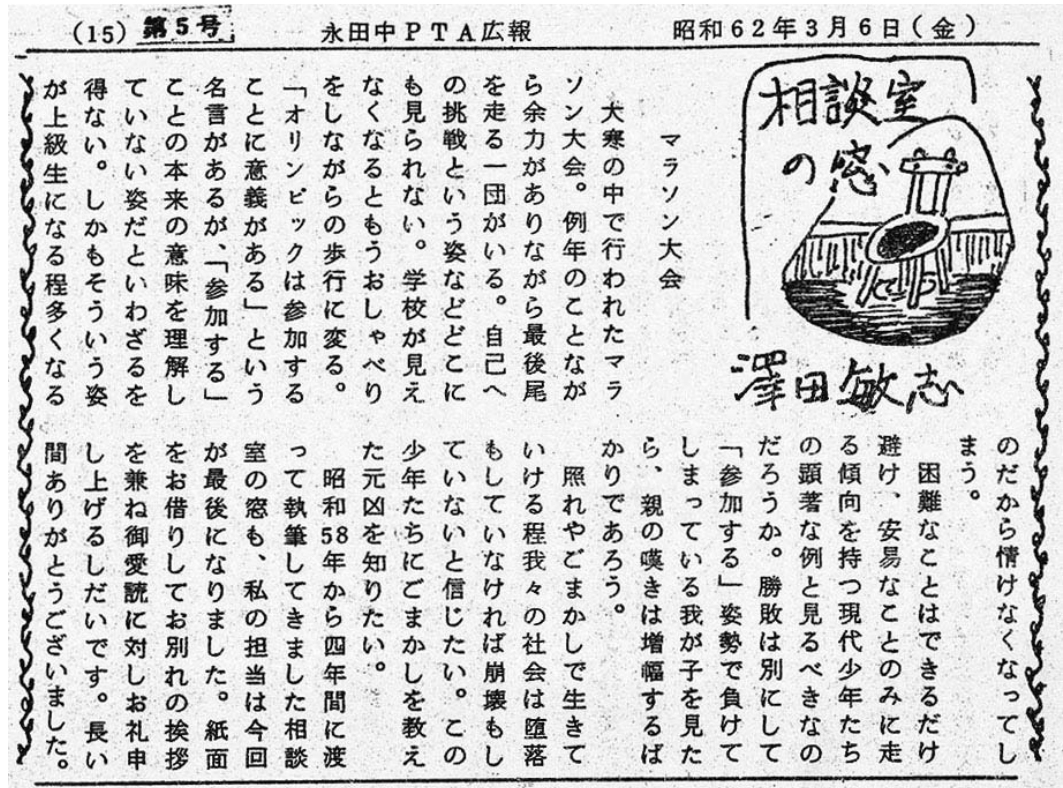 (15) 第5号 永田中PTA広報 昭和62年3月6日(金)
相談室
の窓
澤田敏志
マラソン大会
大寒の中で行われたマラ
ソン大会。例年のことなが
ら余力がありながら最後尾
を走る一団がいる。自己へ
の挑戦という姿などどこに
も見られない。学校が見え
なくなるともうおしゃべり
をしながらの歩行に変る。
「オリンピックは参加する
ことに意義がある」という
名言があるが、「参加する」
ことの本来の意味を理解し
ていない姿だといわざるを
得ない。しかもそういう姿
が上級生になる程多くなる
のだから情けなくなってし
まう。
困難なことはできるだけ
避け、安易なことのみに走
る傾向を持つ現代少年たち
の顕著な例と見るべきなの
だろうか。勝敗は別にして
「参加する」姿勢で負けて
しまっている我が子を見た
ら、親の嘆きは増幅するば
かりであろう。
照れやごまかしで生きて
いける程我々の社会は堕落
もしていなければ崩壊もし
ていないと信じたい。この
少年たちにごまかしを教え
た元凶を知りたい。
昭和58年から四年間に渡
って執筆してきました相談
室の窓も、私の担当は今回
が最後になりました。紙面
をお借りしてお別れの挨拶
を兼ね御愛読に対しお礼申
し上げるしだいです。長い
間ありがとうございました。